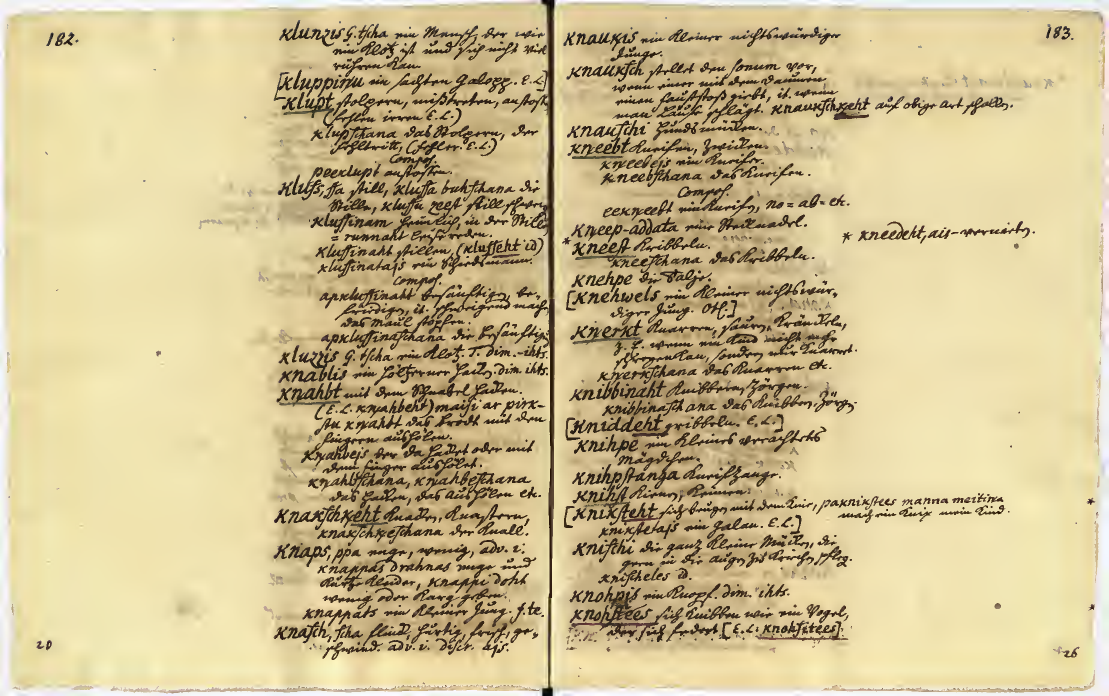 182.
Klunzis G. tscha ein Mensch, der wie
ein Klotz ist und sich nicht viel
rühren kan.
[Kluppinu ein sachten Galopp. E. L.]
Klupt stolpern, mißtreten, anstoß
(fehlen irren E. L.)
Klupschana das Stolpern, der
Fehltritt, (Fehler. E. L.)
Compos.
peeklupt anstoßen.
Kluss, ssa still, klussa buhschana die
Stille, klussu zeest still schwei
klussinam heimlich, in der Stille
= runnaht leise reden.
klussinaht stillen, (klusseht id)
klussinatajs ein Schiedsmann.
Compos.
apklussinaht besänftigen, be-
friedigen, it. schweigend mach
das Maul stopfen.
apklussinaschana die Besänftig
Kluzzis G. tscha ein Klotz. T. dim. -ihts.
Knablis ein hölzerner Haken dim. ihts.
Knahbt mit dem Schnabel hacken.
(E. L. knahbeht) maisi ar pirk-
stu knahbt das Brodt mit den
Fingern aushölen.
Knahbejs der da hacket oder mit
dem Finger aushölet.
knahbschana, knahbeschana
das Hacken, das Aushölen etc.
Knakschkeht Knacken, Knastern,
knakschkeschana der Knall.
Knaps, ppa enge, wenig, adv. i.
knappas drahnas enge und
kurtze Kleider, knappi doht
wenig oder karg geben.
knappats ein kleiner Jung. f. te.
Knasch, scha flink, hurtig, frisch, ge-
schwind. adv. i. discr. ajs.
20
183.
Knaukis ein kleiner nichtswürdiger
Junge.
Knauksch stellet den sonum vor,
wenn einer mit dem Daumen
einen Fauststoß giebt, it. wenn
man Läuse schlägt. Knaukschkeht auf obige Art schallen.
Knauschi Hundsmücken.
Kneebt Kneifen, Zwicken.
kneebejs ein Kneifer.
kneebschana das Kneifen.
Compos.
eekneebt einkneifen, no = ab = etc.
Kneep-addata eine Stecknadel.
* Kneest Kribbeln.
* kneedeht, ais- vernieten.
kneeschana das Kribbeln.
Knehpe die Salze.
[Knehwels ein kleiner nichtswür-
diger Jung. Oth.]
Knerkt Knarren,
z. E. wenn ein Kind nicht mehr
schreyen kan, sondern nur knarret.
knerkschana das Knarren etc.
Knibbinaht
knibbinaschana das
[Kniddeht gribbeln. E. L.]
Knihpe ein kleines verachtetes
Mägdchen.
Knihpstanga Kneifzange.
Knihst
[Kniksteht sich beugen mit dem Knie, paknikstees manna meitina
mach ein Knix mein Kind.
*
knikstetajs ein Galan. E. L.]
Knischi die ganz kleine Mücken, die
gern in die Augen zu kriechen pfleg.
knischeles id.
Knohpis ein Knopf. dim. ihts.
Knohstees sich knibben wie ein Vogel,
*
der sich federt [E. L. knohsitees].
26